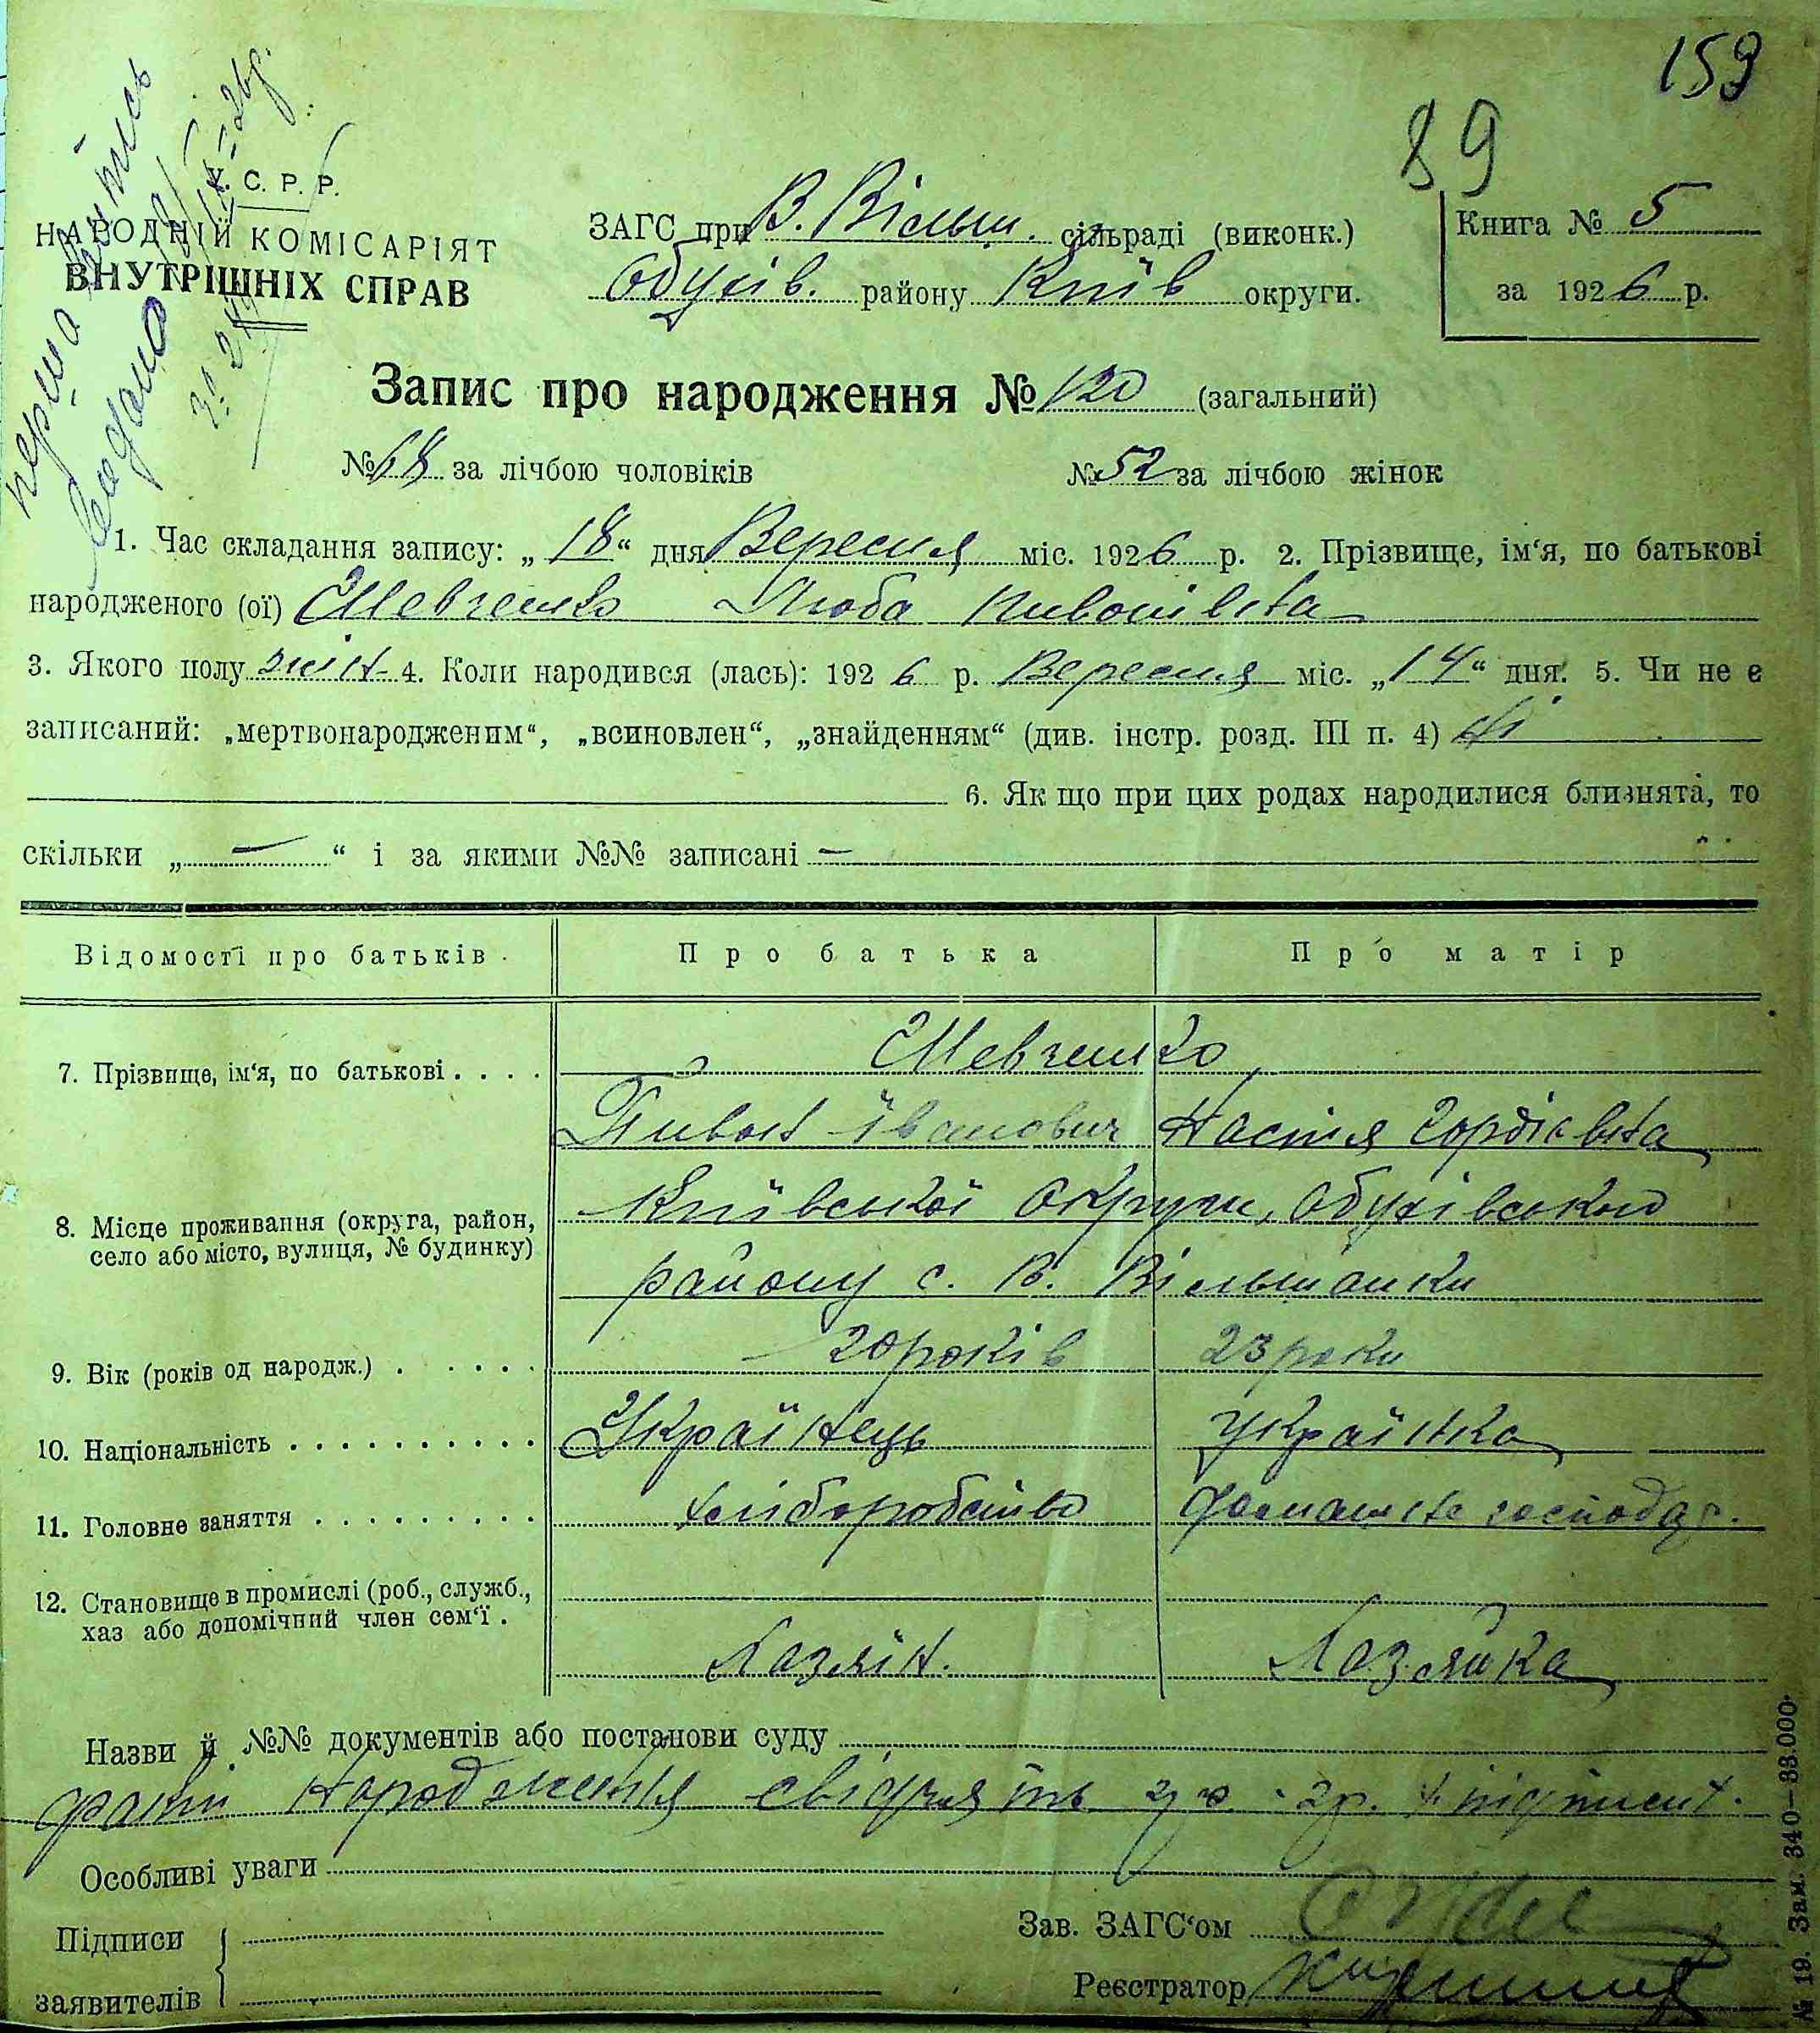 159
89
У. С. Р. Р.
НАРОДНІЙ КОМІСАРІЯТ
ВНУТРІШНІХ СПРАВ
перша
ЗАГС при В. Вільш. сільраді (виконк.)
Обухів. району Київ округи.
Книга № 5
за 1926 р.
Запис про народження № 120 (загальний)
№ 68 за лічбою чоловіків № 52 за лічбою жінок
1. Час складання запису: „18“ дня Вересня міс. 1926 р. 2. Прізвище, ім‘я, по батькові
народженого (ої) Шевченко Люба Пивонівна
3. Якого полу жін. 4. Коли народився (лась): 1926 р. Вересня міс. „14“ дня. 5. Чи не є
записаний: „мертвонародженим“, „всиновлен“, „знайденням“ (див. інстр. розд. III п. 4) Ні
6. Як що при цих родах народилися близнята, то
скільки „—“ і за якими №№ записані —
Відомості про батьків Про батька Про матір
7. Прізвище, ім‘я, по батькові . . . . Шевченко
Пивон Іванович Настя Гордієвна
8. Місце проживання (округа, район, Київської округи, Обухівського
село або місто, вулиця, № будинку) району с. В. Вільшанки
9. Вік (років од народж.) . . . . . . 20 років 23 роки
10. Національність . . . . . . . . . . Українець Українка
11. Головне заняття . . . . . . . . . хліборобство Домашнє господар.
12. Становище в промислі (роб., служб.,
хаз або допомічний член сем‘ї . Хазяїн. Хазяйка
Назви й №№ документів або постанови суду
факт народження свідчять гр. гр.
Особливі уваги
Підписи
заявителів
Зав. ЗАГС‘ом
Реєстратор
№ 19. Зам. 340—33.000